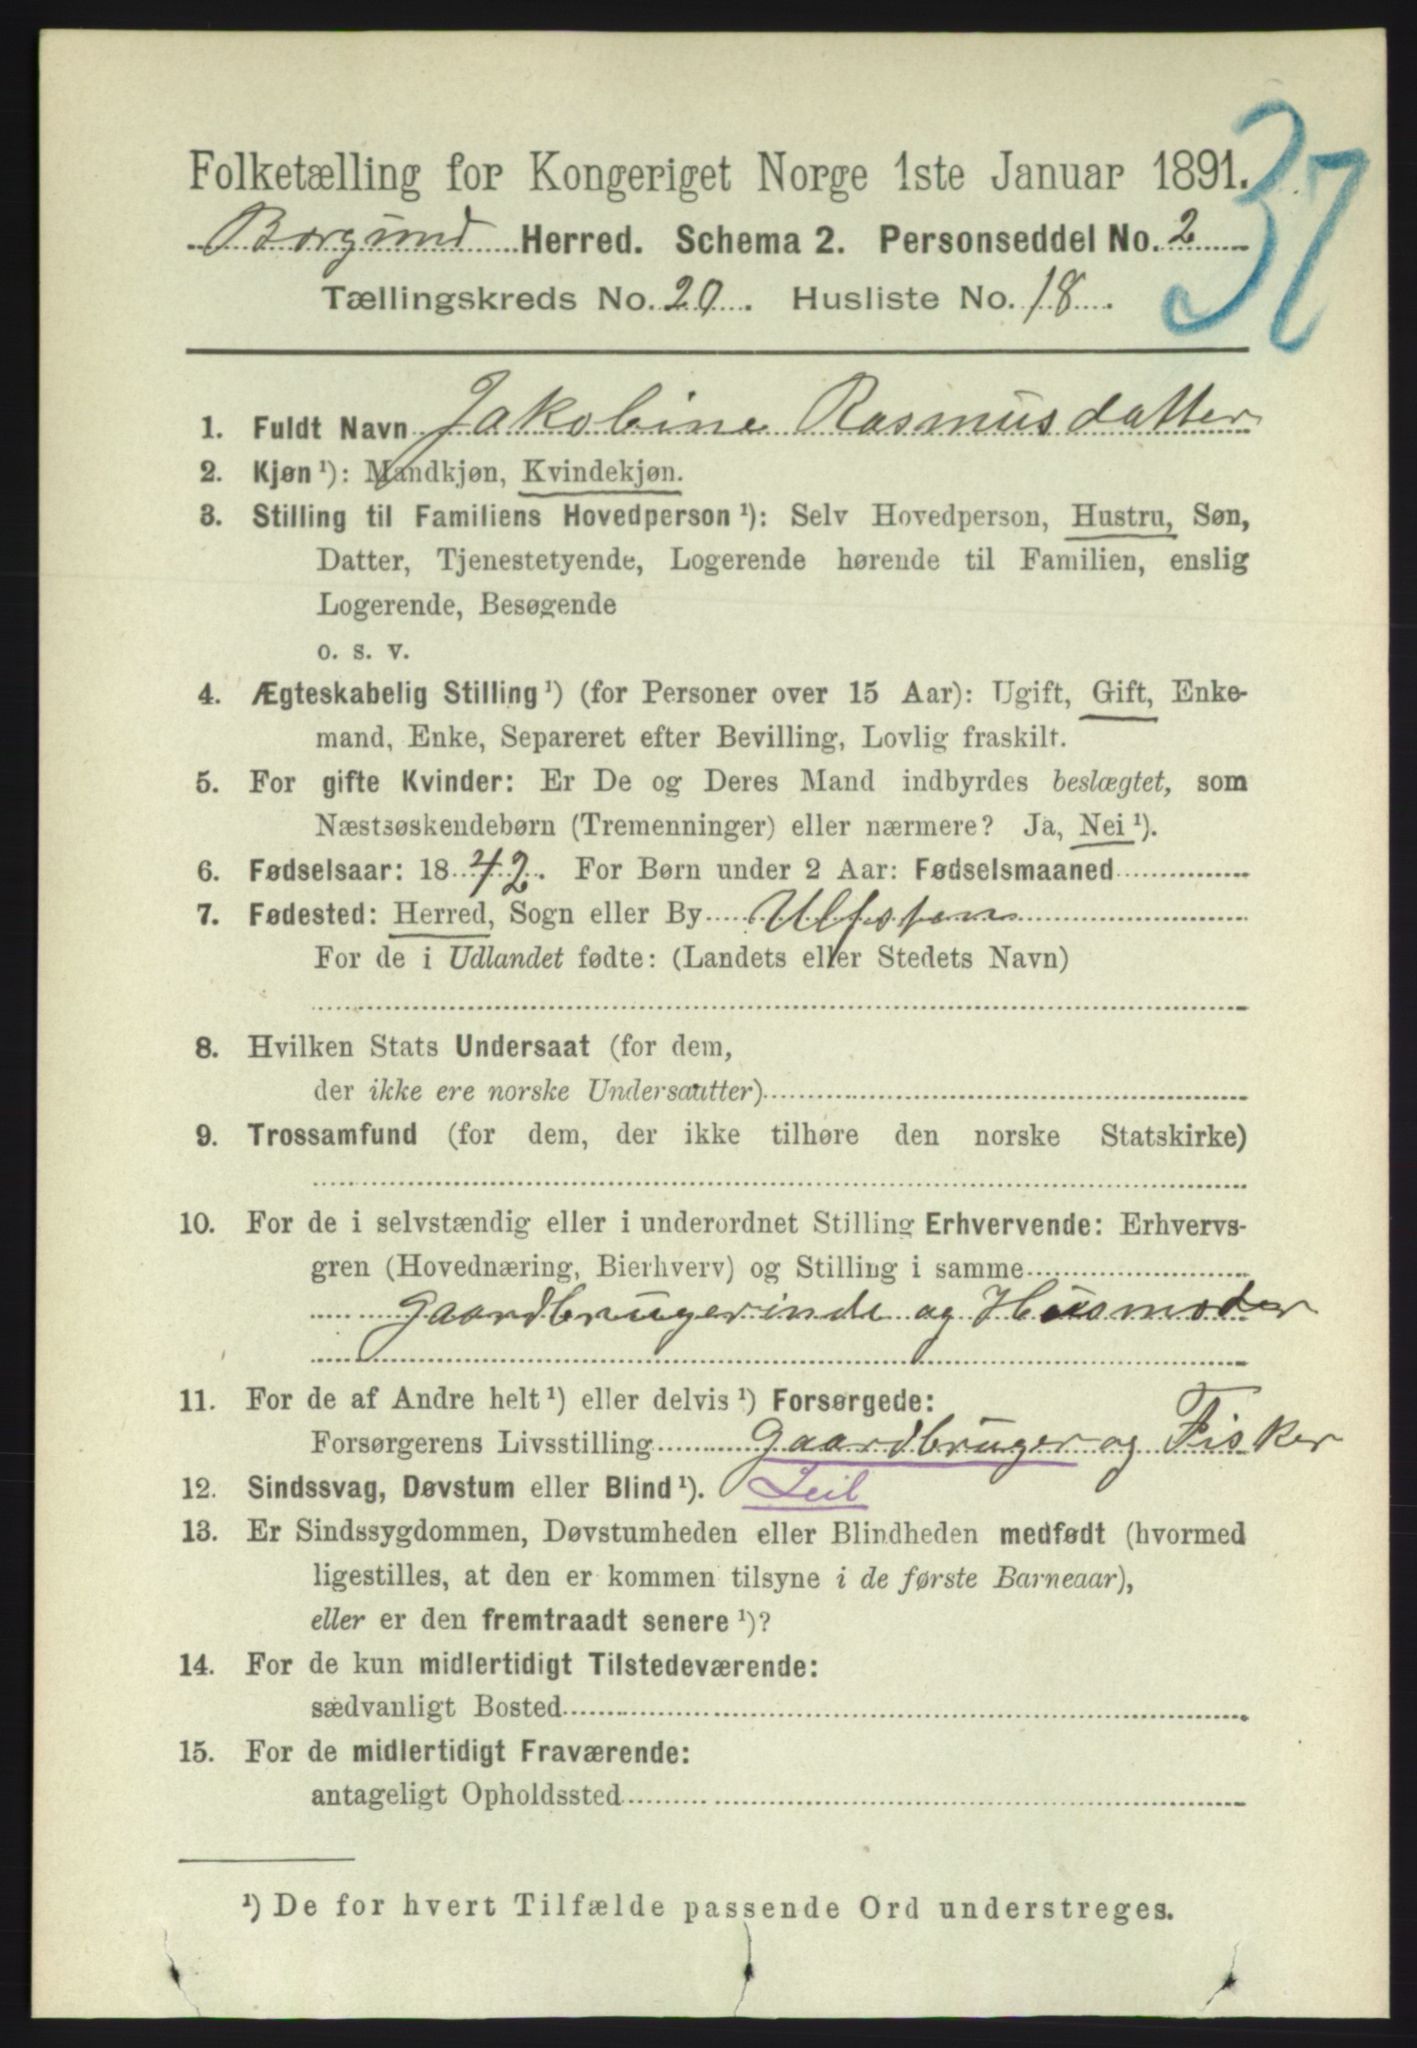 37
Folketælling for Kongeriget Norge 1ste Januar 1891.
Borgund Herred. Schema 2. Personseddel No. 2
Tællingskreds No. 20. Husliste No. 18.
1. Fuldt Navn Jakobine Rasmusdatter
2. Kjøn ¹): Mandkjøn, Kvindekjøn.
3. Stilling til Familiens Hovedperson ¹): Selv Hovedperson, Hustru, Søn,
Datter, Tjenestetyende, Logerende hørende til Familien, enslig
Logerende, Besøgende
o. s. v.
4. Ægteskabelig Stilling ¹) (for Personer over 15 Aar): Ugift, Gift, Enke-
mand, Enke, Separeret efter Bevilling, Lovlig fraskilt.
5. For gifte Kvinder: Er De og Deres Mand indbyrdes beslægtet, som
Næstsøskendebørn (Tremenninger) eller nærmere? Ja, Nei ¹).
6. Fødselsaar: 1842. For Børn under 2 Aar: Fødselsmaaned
7. Fødested: Herred, Sogn eller By Ulfsten
For de i Udlandet fødte: (Landets eller Stedets Navn)
8. Hvilken Stats Undersaat (for dem,
der ikke ere norske Undersaatter)
9. Trossamfund (for dem, der ikke tilhøre den norske Statskirke)
10. For de i selvstændig eller i underordnet Stilling Erhvervende: Erhvervs-
gren (Hovednæring, Bierhverv) og Stilling i samme
Gaardbrugerinde og Husmoder
11. For de af Andre helt ¹) eller delvis ¹) Forsørgede:
Forsørgerens Livsstilling Gaardbruger og Fisker
12. Sindssvag, Døvstum eller Blind ¹). Leil
13. Er Sindssygdommen, Døvstumheden eller Blindheden medfødt (hvormed
ligestilles, at den er kommen tilsyne i de første Barneaar),
eller er den fremtraadt senere ¹)?
14. For de kun midlertidigt Tilstedeværende:
sædvanligt Bosted
15. For de midlertidigt Fraværende:
antageligt Opholdssted
¹) De for hvert Tilfælde passende Ord understreges.